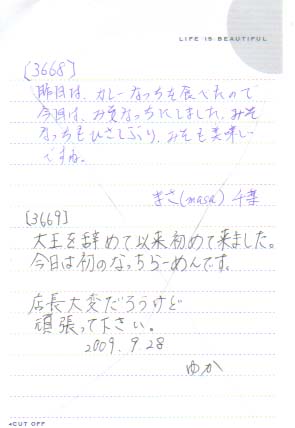 LIFE IS BEAUTIFUL
[3668]
昨日は、カレーなっちを食べたので
今日は、みそなっちにしました。みそ
なっちもひさしぶり、みそも美味しい
ですね。
まさ(masa) 千葉
[3669]
大王を辞めて以来初めて来ました。
今日は初のなっちらーめんです。
店長大変だろうけど
頑張って下さい。
2009.9.28
ゆか
◂CUT OFF